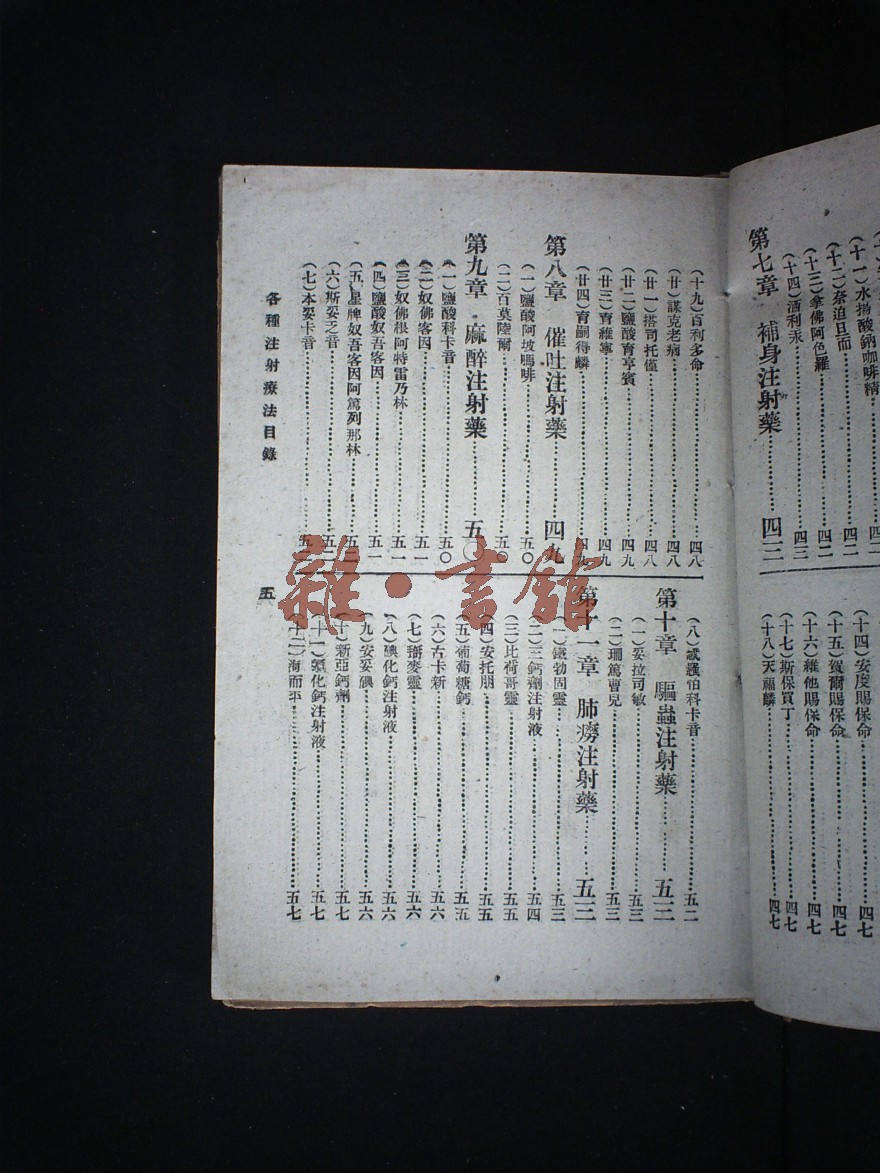 十一）水揚酸鈉咖啡精
（十二）奈迫旦而……四二
（十三）拿佛阿色羅……四二
（十四）酒利汞……四三
第七章　補身注射藥……四三
（十四）安度賜保命……四七
（十五）賀爾賜保命……四七
（十六）維他賜保命……四七
（十七）斯保買丁……四七
（十八）天福麟……四七
（十九）百利多命……四八
（廿）謀克老病……四八
（廿一）搭司托僅……四八
（廿二）鹽酸育亨賓……四九
（廿三）育維寧……四九
（廿四）育嗣得麟……四九
第八章　催吐注射藥……四九
（一）鹽酸阿坡嗎啡……五〇
（二）百莫陸爾……五〇
第九章　麻醉注射藥……五〇
（一）鹽酸科卡音……五〇
（二）奴佛客因……五一
（三）奴佛根阿特雷乃林……五一
（四）鹽酸奴吾客因……五一
（五）星牌奴吾客因阿篤列那林……五二
（六）斯妥乏音……五二
（七）本妥卡音……五二
（八）怕科卡音……五二
第十章　驅蟲注射藥……五三
（一）妥拉司敏……五三
（二）珊篤曹兒……五三
第十一章　肺癆注射藥……五三
（一）鐵勃固靈……五三
（二）三鈣劑注射液……五四
（三）比荷哥靈……五五
（四）安托朋……五五
（五）葡萄糖鈣……五五
（六）古卡新……五六
（七）掰麥靈……五六
（八）碘化鈣注射液……五六
（九）安妥碘……五六
（十）新亞鈣劑……五七
（十一）化鈣注射液……五七
（十二）海而平……五七
各種注射療法目錄
五
雜·書館